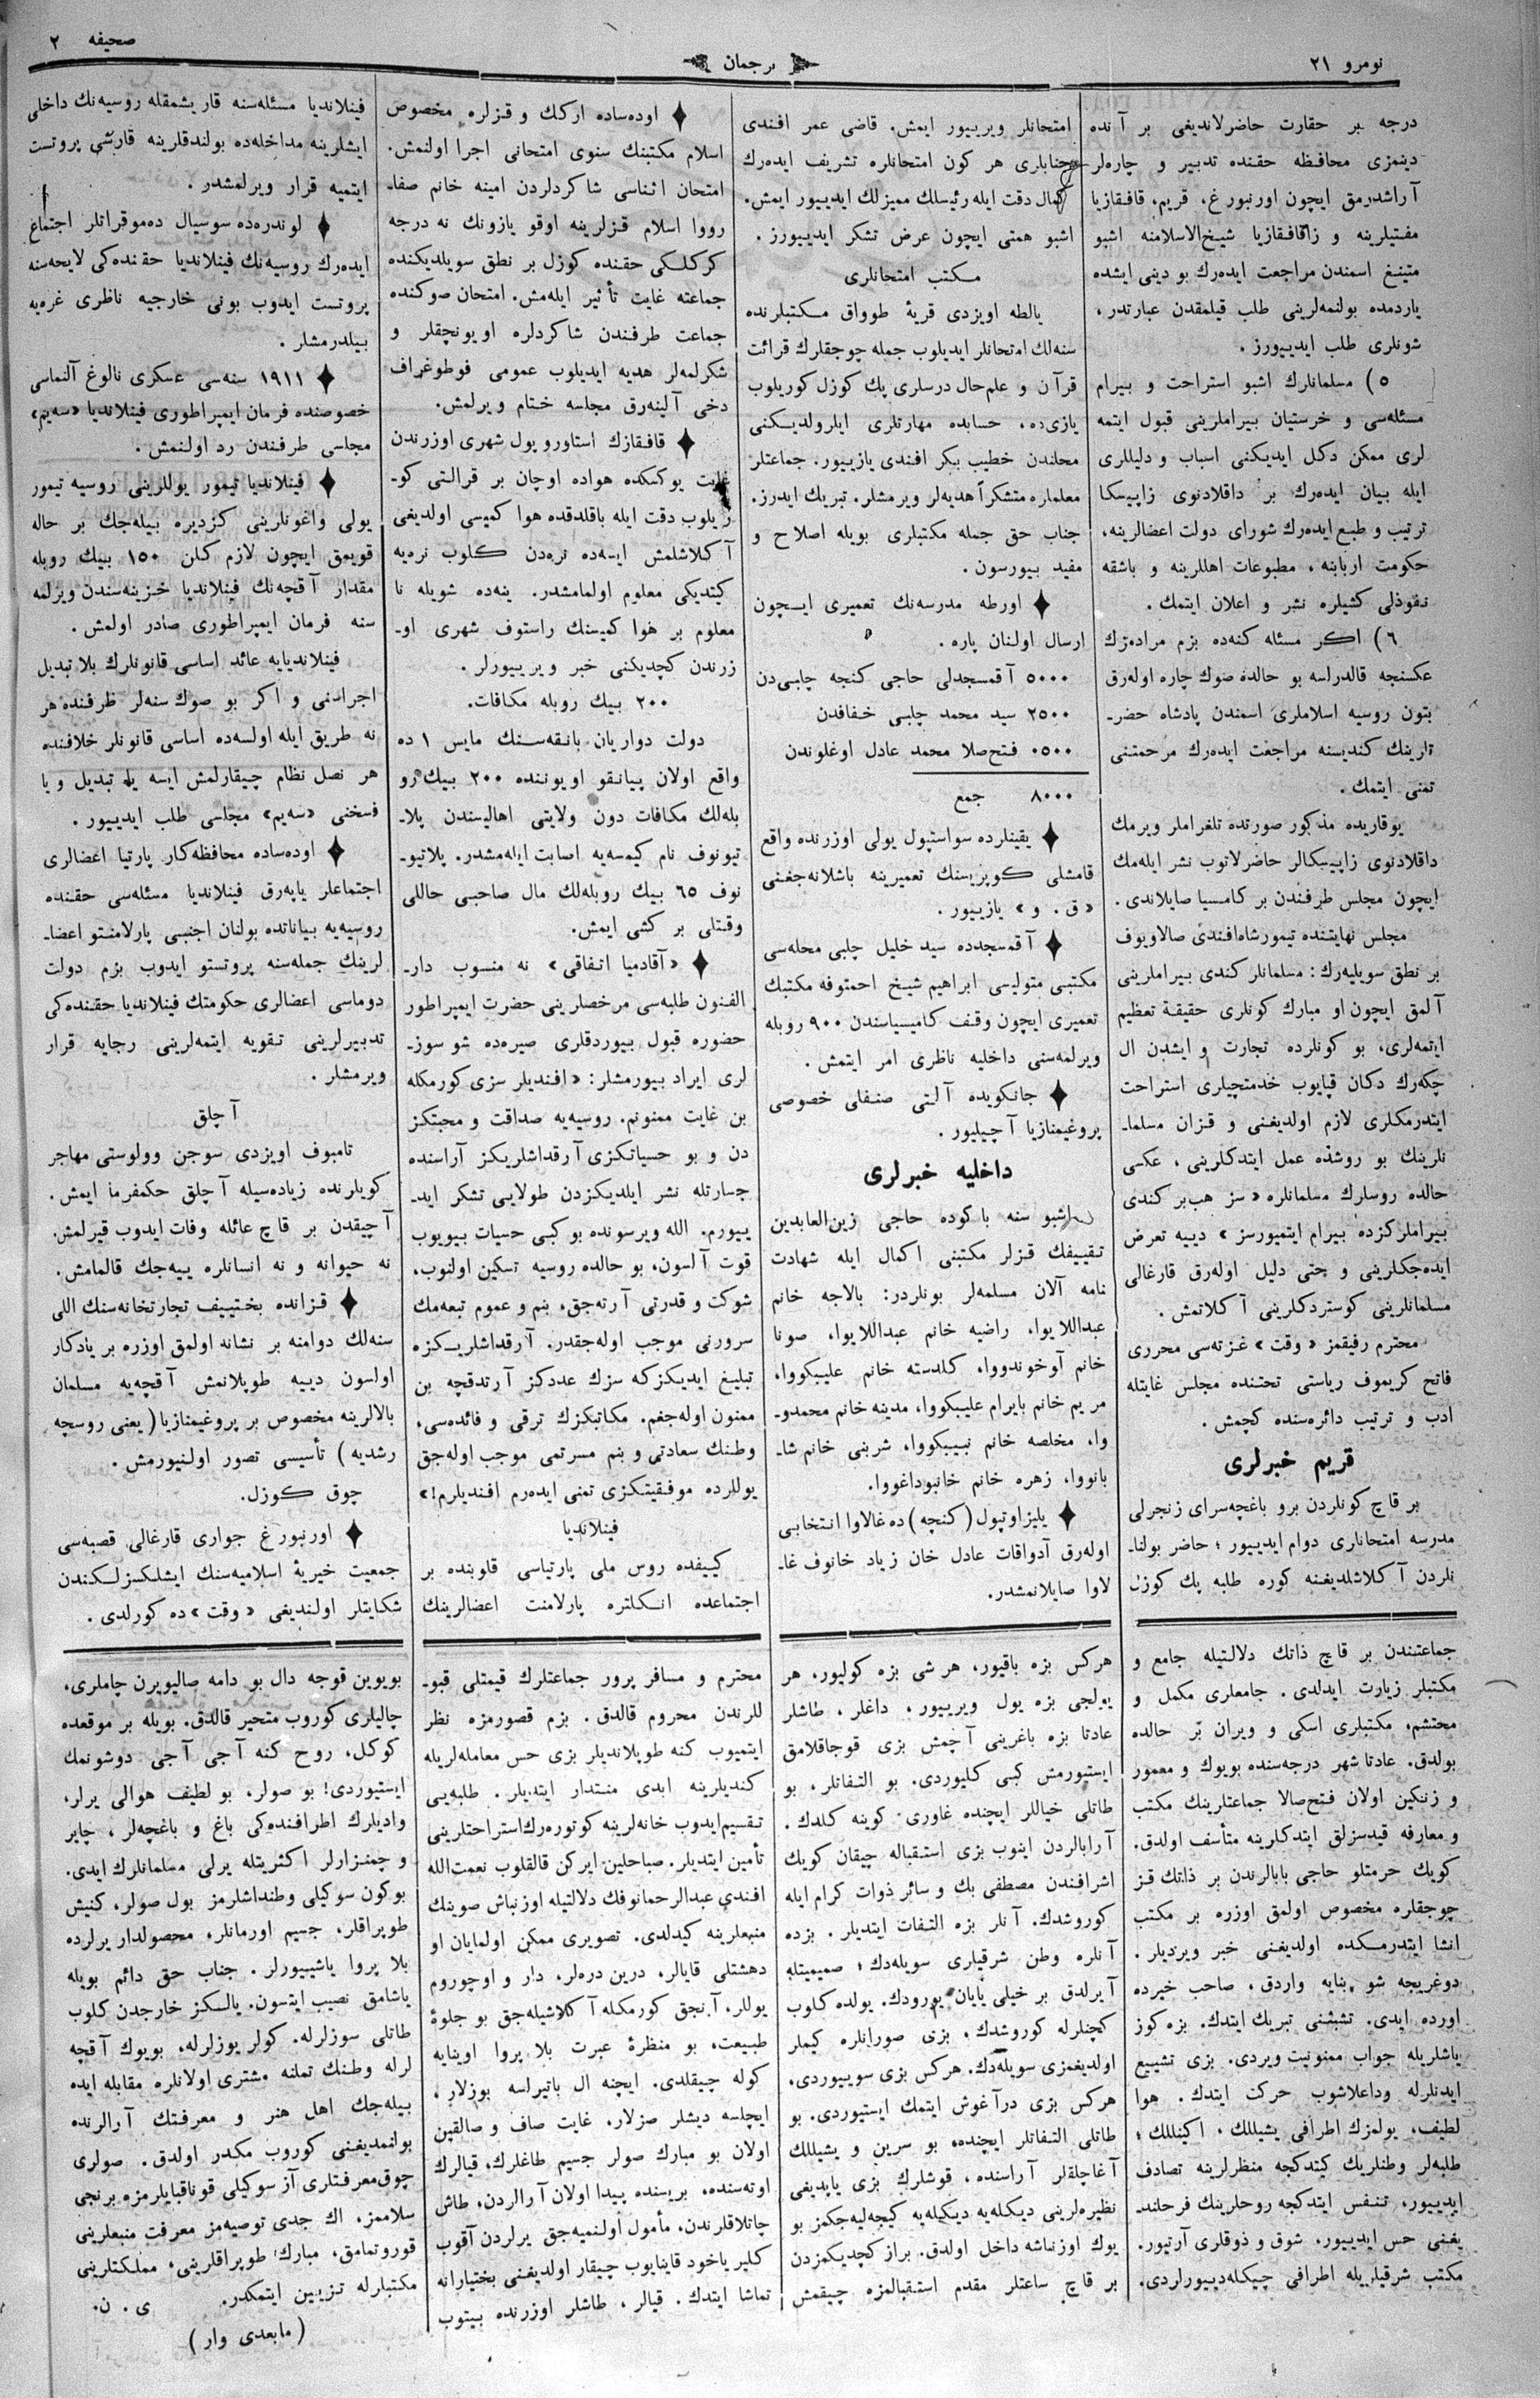 نومرو ٢١
ترجمان
صحیفه ٢
درجه بر حقارت حاضرلاندیغی بر آنده
دینمزی محافظه حقنده تدبیر و چاره‌لر
آراشدرمق ایچون اورنبورغ، قریم، قافقازیا
مفتیلرینه و زاقافقازیا شیخ‌الاسلامنه اشبو
متینغ اسمندن مراجعت ایده‌رك بو دینی ایشده
یاردمده بولنمه‌لرینی طلب قیلمقدن عبارتدر،
شونلری طلب ایدییورز.
٥) مسلمانلرك اشبو استراحت و بیرام
مسئله‌سی و خرستیان بیراملرینی قبول ایتمه
لری ممكن دكل ایدیكنی اسباب و دلیللری
ایله بیان ایده‌رك بر داقلادنوی زاپیسكا
ترتیب و طبع ایده‌رك شورای دولت اعضالرینه،
حكومت اربابنه، مطبوعات اهللرینه و باشقه
نفوذلی كشیلره نشر و اعلان ایتمك.
٦) اكر مسئله كنه‌ده بزم مرادمزك
عكسنجه قالدرلسه بو حالده صوك چاره اوله‌رق
بتون روسیه اسلاملری اسمندن پادشاه حضر-
تلرینك كندیسنه مراجعت ایده‌رك مرحمتنی
تمنی ایتمك.
یوقاریده مذكور صورتده تلغراملر ویرمك
داقلادنوی زاپیسكالر حاضرلاتوب نشر ایله‌مك
ایچون مجلس طرفندن بر كامسیا صایلاندی.
مجلس نهایتنده تیمورشاه‌افندی صالاویوف
بر نطق سویلیه‌رك: مسلمانلر كندی بیراملرینی
آلمق ایچون او مبارك كونلری حقیقة تعظیم
ایتمه‌لری، بو كونلرده تجارت و ایشدن ال
چكه‌رك دكان قپایوب خدمتچیلری استراحت
ایتدرمكلری لازم اولدیغنی و قزان مسلما-
نلرینك بو روشده عمل ایتدكلرینی، عكسی
حالده روسلرك مسلمانلره «سز هب‌بر كندی
بیراملركزده بیرام ایتمیورسز» دییه تعرض
ایده‌جكلرینی و حتی دلیل اوله‌رق قارغالی
مسلمانلرینی كوستردكلرینی آكلاتمش.
محترم رفیقمز «وقت» غزته‌سی محرری
فاتح كریموف ریاستی تحتنده مجلس غایتله
ادب و ترتیب دائره‌سنده كچمش.
قریم خبرلری
بر قاچ كونلردن برو باغچه‌سرای زنجرلی
مدرسه امتحانلری دوام ایدییور؛ حاضر بولنا-
نلردن آكلاشلدیغنه كوره طلبه پك كوزل
امتحانلر ویرییور ایمش. قاضی عمر افندی
جنابلری هر كون امتحانلره تشریف ایده‌رك
كمال دقت ایله رئیسلك ممیزلك ایدییور ایمش.
اشبو همتی ایچون عرض تشكر ایدییورز.
مكتب امتحانلری
یالطه اویزدی قریهٔ طوواق مكتبلرنده
سنه‌لك امتحانلر ایدیلوب جمله چوجقلرك قرائت
قرآن و علم‌حال درسلری پك كوزل كوریلوب
یازیده، حسابده مهارتلری ایلرولدیكنی
محلندن خطیب بكر افندی یازییور. جماعتلر
معلماره متشكراً هدیه‌لر ویرمشلر. تبریك ایدرز.
جناب حق جمله مكتبلری بویله اصلاح و
مفید بیورسون.
اورطه مدرسه‌نك تعمیری ایچون
ارسال اولنان پاره.
٥٠٠٠ آقمسجدلی حاجی كنجه چلبی‌دن
٢٥٠٠ سید محمد چلبی خفافدن
٠٥٠٠ فتح‌صلا محمد عادل اوغلوندن
٨٠٠٠ جمع
یقینلرده سواستپول یولی اوزرنده واقع
قامشلی كوپریسنك تعمیرینه باشلانه‌جغنی
«ق. و» یازییور.
آقمسجدده سید خلیل چلبی محله‌سی
مكتبی متولیسی ابراهیم شیخ احمتوفه مكتبك
تعمیری ایچون وقف كامیسیاسندن ٩٠٠ روبله
ویرلمه‌سنی داخلیه ناظری امر ایتمش.
جانكویده آلتی صنفلی خصوصی
پروغیمنازیا آچیلیور.
داخلیه خبرلری
اشبو سنه باكوده حاجی زین‌العابدین
تقییفك قزلر مكتبنی اكمال ایله شهادت
نامه آلان مسلمه‌لر بونلردر: بالاجه خانم
عبداللایوا، راضیه خانم عبداللایوا، صونا
خانم آوخوندووا، كلدسته خانم علیبكووا،
مریم خانم بایرام علیبكووا، مدینه خانم محمدو-
وا، مخلصه خانم نبیبكووا، شربنی خانم شا-
بانووا، زهره خانم خانبوداغووا.
یلیزاوتپول (كنجه) ده غالاوا انتخابی
اوله‌رق آدواقات عادل خان زیاد خانوف غا-
لاوا صایلانمشدر.
اوده‌ساده اركك و قزلره مخصوص
اسلام مكتبنك سنوی امتحانی اجرا اولنمش.
امتحان اثناسی شاكردلردن امینه خانم صفا-
رووا اسلام قزلرینه اوقو یازونك نه درجه
كركلكی حقنده كوزل بر نطق سویلدیكنده
جماعته غایت تأثیر ایله‌مش. امتحان صوكنده
جماعت طرفندن شاكردلره اویونچقلر و
شكرلمه‌لر هدیه ایدیلوب عمومی فوطوغراف
دخی آلینه‌رق مجلسه ختام ویرلمش.
قافقازك استاوروپول شهری اوزرندن
غایت یوكسكده هواده اوچان بر قرالتی كو-
ریلوب دقت ایله باقلدقده هوا كمیسی اولدیغی
آكلاشلمش ایسه‌ده نره‌دن كلوب نره‌یه
كیتدیكی معلوم اولمامشدر. ینه‌ده شویله نا
معلوم بر هوا كمیسنك راستوف شهری او-
زرندن كچدیكنی خبر ویرییورلر.
٢٠٠ بیك روبله مكافات.
دولت دواریان بانقه‌سنك مایس ١ ده
واقع اولان پیانقو اویوننده ٢٠٠ بیك رو
بله‌لك مكافات دون ولایتی اهالیسندن پلا-
تیونوف نام كیمسه‌یه اصابت ایله‌مشدر. پلاتیو-
نوف ٦٥ بیك روبله‌لك مال صاحبی حاللی
وقتلی بر كشی ایمش.
«آقادمیا اتفاقی» نه منسوب دار-
الفنون طلبه‌سی مرخصلرینی حضرت ایمپراطور
حضوره قبول بیوردقلری صیره‌ده شو سوز-
لری ایراد بیورمشلر: «افندیلر سزی كورمكله
بن غایت ممنونم. روسیه‌یه صداقت و محبتكز
دن و بو حسیاتكزی آرقداشلریكز آراسنده
جسارتله نشر ایلدیكزدن طولایی تشكر اید-
ییورم. الله ویرسونده بو كبی حسیات بیویوب
قوت آلسون، بو حالده روسیه تسكین اولنوب،
شوكت و قدرتی آرته‌جق، بنم و عموم تبعه‌مك
سرورنی موجب اوله‌جقدر. آرقداشلریكزه
تبلیغ ایدیكزكه سزك عددكز آرتدقچه بن
ممنون اوله‌جغم. مكاتبكزك ترقی و فائده‌سی،
وطنك سعادتی و بنم مسرتمی موجب اوله‌جق
یوللرده موفقیتكزی تمنی ایده‌رم افندیلرم!»
فینلاندیا
كییفده روس ملی پارتیاسی قلوبنده بر
اجتماعده انكلتره پارلامنت اعضالرینك
فینلاندیا مسئله‌سنه قاریشمقله روسیه‌نك داخلی
ایشلرینه مداخله‌ده بولندقلرینه قارشی پروتست
ایتمیه قرار ویرلمشدر.
لوندره‌ده سوسیال ده‌موقراتلر اجتماع
ایده‌رك روسیه‌نك فینلاندیا حقنده‌كی لایحه‌سنه
پروتست ایدوب بونی خارجیه ناظری غره‌یه
بیلدرمشلر.
١٩١١ سنه‌سی عسكری نالوغ آلنماسی
خصوصنده فرمان ایمپراطوری فینلاندیا «سه‌یم»
مجلسی طرفندن رد اولنمش.
فینلاندیا تیمور یوللرینی روسیه تیمور
یولی واغونلرینی كزدیره بیله‌جك بر حاله
قویمق ایچون لازم كلن ١٥٠ بیك روبله
مقدار آقچه‌نك فینلاندیا خزینه‌سندن ویرلمه
سنه فرمان ایمپراطوری صادر اولمش.
فینلاندیایه عائد اساسی قانونلرك بلا تبدیل
اجراسنی و اكر بو صوك سنه‌لر ظرفنده هر
نه طریق ایله اولسه‌ده اساسی قانونلر خلافنده
هر نصل نظام چیقارلمش ایسه یا تبدیل و یا
فسخنی «سه‌یم» مجلسی طلب ایدییور.
اوده‌ساده محافظه‌كار پارتیا اعضالری
اجتماعلر یاپه‌رق فینلاندیا مسئله‌سی حقنده
روسیه‌یه بیاناتده بولنان اجنبی پارلامنتو اعضا-
لرینك جمله‌سنه پروتستو ایدوب بزم دولت
دوماسی اعضالری حكومتك فینلاندیا حقنده‌كی
تدبیرلرینی تقویه ایتمه‌لرینی رجایه قرار
ویرمشلر.
آچلق
تامبوف اویزدی سوجن وولوستی مهاجر
كویلرنده زیاده‌سیله آچلق حكمفرما ایمش.
آچیقدن بر قاچ عائله وفات ایدوب قیرلمش.
نه حیوانه و نه انسانلره ییه‌جك قالمامش.
قزانده بختییف تجارتخانه‌سنك اللی
سنه‌لك دوامنه بر نشانه اولمق اوزره بر یادكار
اولسون دییه طوپلانمش آقچه‌یه مسلمان
بالالرینه مخصوص بر پروغیمنازیا (یعنی روسچه
رشدیه) تأسیسی تصور اولنیورمش.
چوق كوزل.
اورنبورغ جواری قارغالی قصبه‌سی
جمعیت خیریهٔ اسلامیه‌سنك ایشلكسزلكندن
شكایتلر اولندیغی «وقت» ده كورلدی.
جماعتندن بر قاچ ذاتك دلالتیله جامع و
مكتبلر زیارت ایدلدی. جامعلری مكمل و
محتشم، مكتبلری اسكی و ویران بر حالده
بولدق. عادتا شهر درجه‌سنده بویوك و معمور
و زنكین اولان فتح‌صالا جماعتلرینك مكتب
و معارفه قیدسزلق ایتدكلرینه متأسف اولدق.
كویك حرمتلو حاجی بابالرندن بر ذاتك قز
چوجقلره مخصوص اولمق اوزره بر مكتب
انشا ایتدرمكده اولدیغنی خبر ویردیلر.
دوغریجه شو بنایه واردق، صاحب خیرده
اورده ایدی. تشبثنی تبریك ایتدك. بزه كوز
یاشلریله جواب ممنونیت ویردی. بزی تشییع
ایدنلرله وداعلاشوب حركت ایتدك. هوا
لطیف، یولمزك اطرافی یشیللك، اكینلك؛
طلبه‌لر وطنلرینك كیتدكجه منظرلرینه تصادف
ایدییور، تنفس ایتدكجه روحلرینك فرحلند-
یغنی حس ایدییور، شوق و ذوقلری آرتیور.
مكتب شرقیلریله اطرافی چیكله‌دییورلردی.
هركس بزه باقیور، هر شی بزه كولیور، هر
یولجی بزه یول ویرییور، داغلر، طاشلر
عادتا بزه باغرینی آچمش بزی قوجاقلامق
ایستیورمش كبی كلیوردی. بو التفاتلر، بو
طاتلی خیاللر ایچنده غاوری كوینه كلدك.
آرابالردن اینوب بزی استقباله چیقان كویك
اشرافندن مصطفی بك و سائر ذوات كرام ایله
كوروشدك. آنلر بزه التفات ایتدیلر. بزده
آنلره وطن شرقیلری سویله‌دك؛ صمیمیتله
آیرلدق بر خیلی یایان یورودك. یولده كلوب
كچنلرله كوروشدك، بزی صورانلره كیملر
اولدیغمزی سویله‌دك. هركس بزی سوییوردی،
هركس بزی درآغوش ایتمك ایستیوردی. بو
طاتلی التفاتلر ایچنده، بو سرین و یشیللك
آغاچلقلر آراسنده، قوشلرك بزی یاپدیغی
نظیره‌لرینی دیكله‌یه دیكله‌یه كیجه‌لیه‌جكمز بو
یوك اوزنباشه داخل اولدق. براز كچدیكمزدن
بر قاچ ساعتلر مقدم استقبالمزه چیقمش
محترم و مسافر پرور جماعتلرك قیمتلی قبو-
للرندن محروم قالدق. بزم قصورمزه نظر
ایتمیوب كنه طوپلاندیلر بزی حس معامله‌لریله
كندیلرینه ابدی منتدار ایتدیلر. طلبه‌یی
تقسیم‌ایدوب خانه‌لرینه كوتوره‌رك‌استراحتلرینی
تأمین ایتدیلر. صباحلین ایركن قالقلوب نعمت‌الله
افندی عبدالرحمانوفك دلالتیله اوزنباش صوینك
منبعلرینه كیدلدی. تصویری ممكن اولمایان او
دهشتلی قایالر، درین دره‌لر، دار و اوچوروم
یوللر، آنجق كورمكله آكلاشیله‌جق بو جلوهٔ
طبیعت، بو منظرهٔ عبرت بلا پروا اوینایه
كوله چیقلدی. ایچنه ال باتیرلسه بوزلار،
ایچلسه دیشلر صزلار، غایت صاف و صالقین
اولان بو مبارك صولر جسیم طاغلرك، قیالرك
اوته‌سنده، بریسنده پیدا اولان آرالردن، طاش
چاتلاقلرندن، مأمول اولنمیه‌جق یرلردن آقوب
كلیر یاخود قاینایوب چیقار اولدیغنی بختیارانه
تماشا ایتدك. قیالر، طاشلر اوزرنده بیتوب
بویوین قوجه دال بو دامه صالیویرن چاملری،
چالیلری كوروب متحیر قالدق. بویله بر موقعده
كوكل، روح كنه آجی آجی دوشونمك
ایستیوردی! بو صولر، بو لطیف هوالی یرلر،
وادیلرك اطرافنده‌كی باغ و باغچه‌لر، چایر
و چمنزارلر اكثریتله یرلی مسلمانلرك ایدی.
بوكون سوكیلی وطنداشلرمز بول صولر، كنیش
طوپراقلر، جسیم اورمانلر، محصولدار یرلرده
بلا پروا یاشییورلر. جناب حق دائم بویله
یاشامق نصیب ایتسون. یالكز خارجدن كلوب
طاتلی سوزلرله، كولر یوزلرله، بویوك آقچه
لرله وطنك تملنه مشتری اولانلره مقابله ایده
بیله‌جك اهل هنر و معرفتك آرالرنده
بولنمدیغنی كوروب مكدر اولدق. صولری
چوق‌معرفتلری آز سوكیلی قوناقبایلرمزه برنجی
سلاممز، اك جدی توصیه‌مز معرفت منبعلرینی
قوروتمامق، مبارك طوپراقلرینی، مملكتلرینی
مكتبلرله تزیین ایتمكدر. ی. ن.
(مابعدی وار)